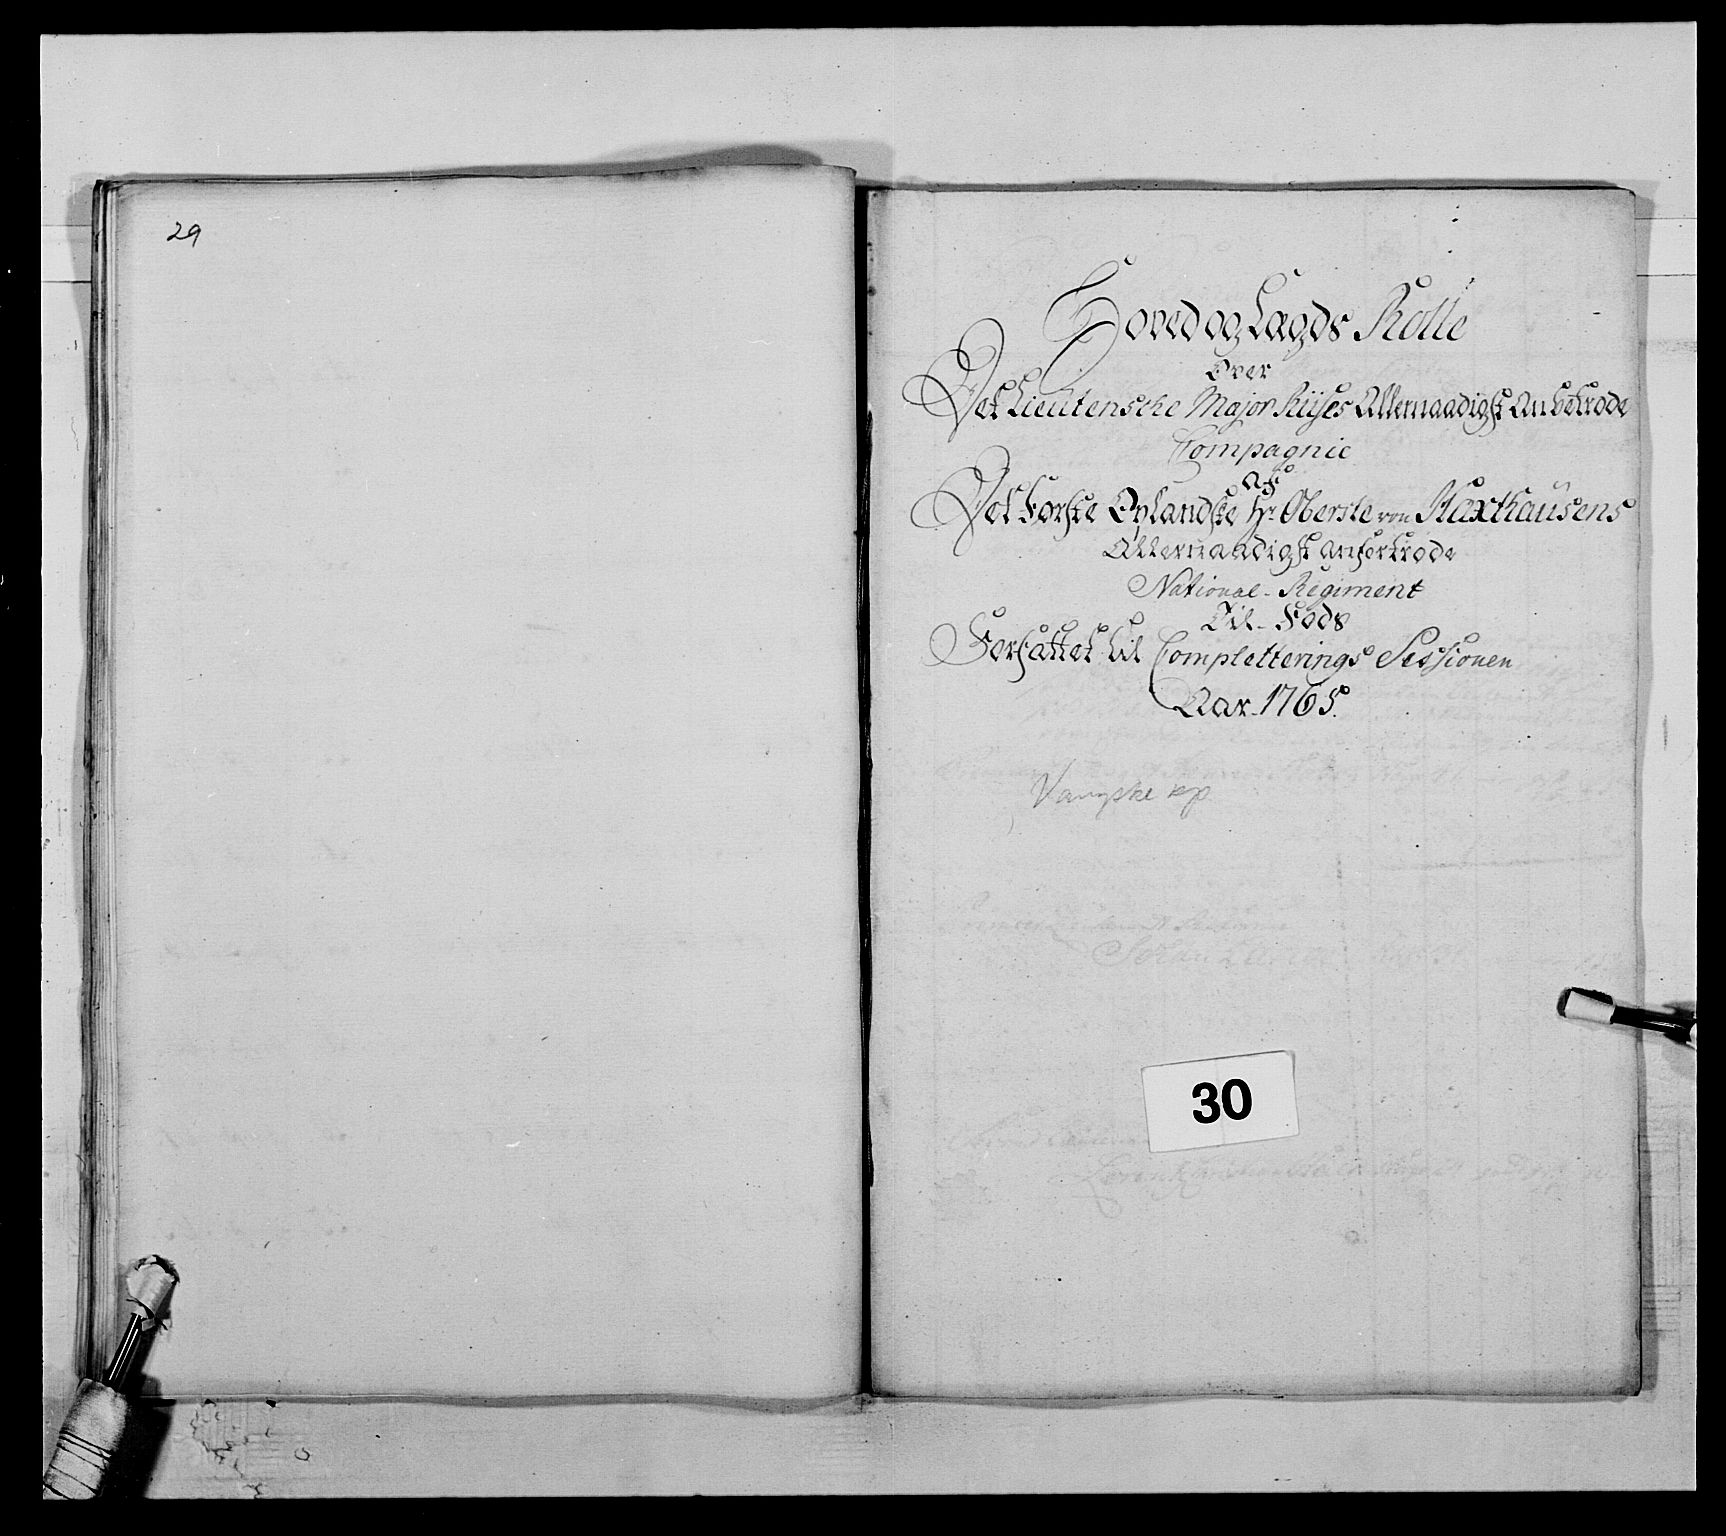 29
Hoved og Lægds Rolle
Over
Det Lieutenske Major Riises Allernaadigst Anbetrode
Compagnie
Af
Det Første Oplandske Hr Oberste von Haxthausens
Allernaadigst anfortrode
National-Regiment
Til-Fods
Forfattet til Completterings Sessionen
Aar 1765.
Vangske kp
30